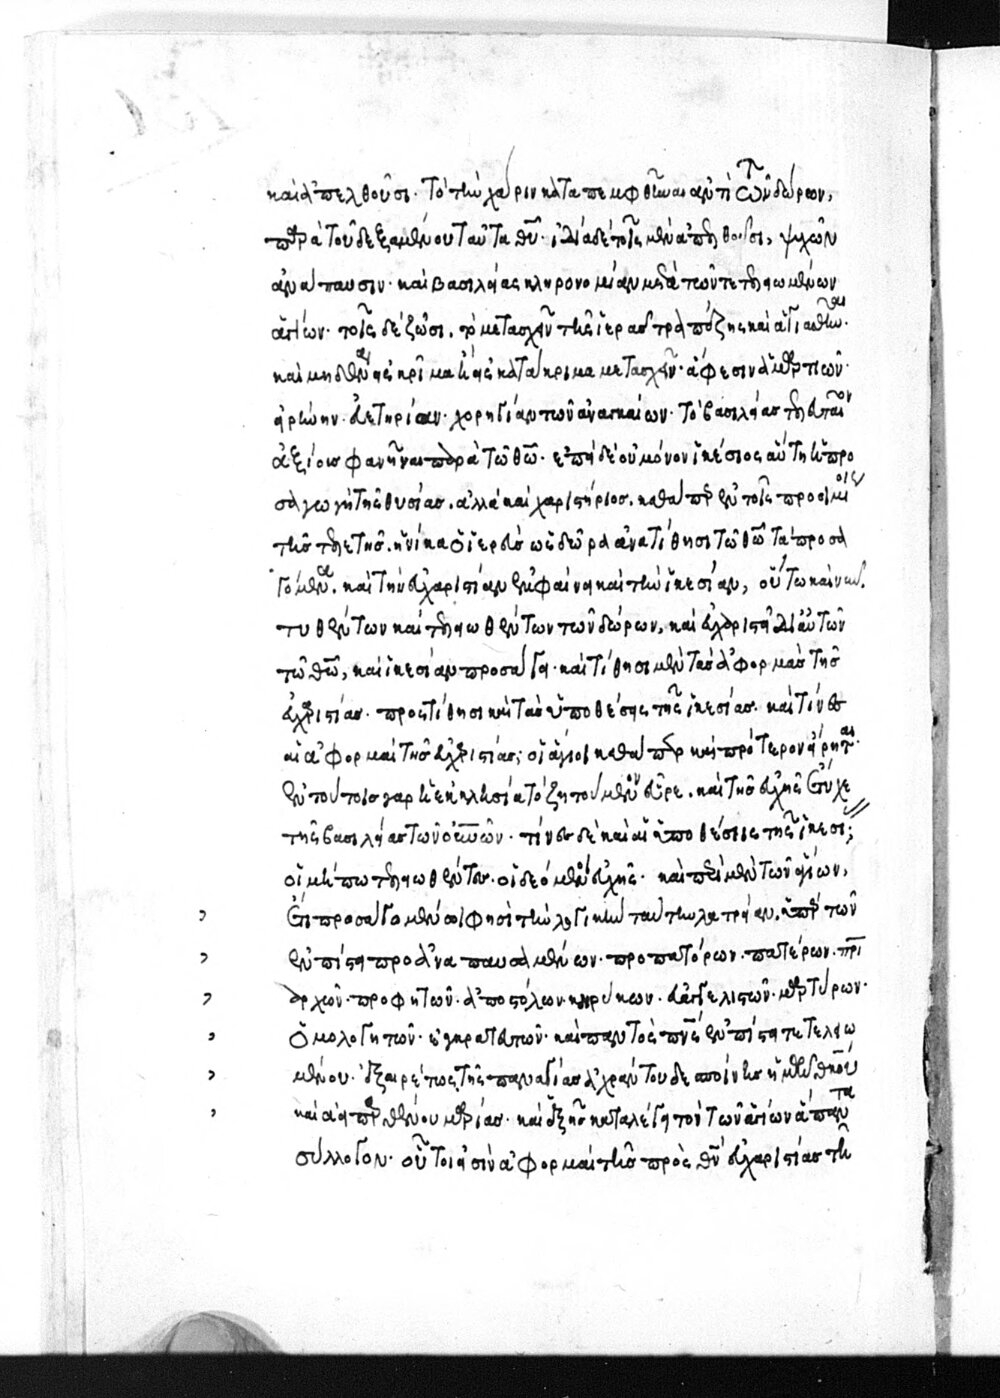 καὶ ἀπελθοῦσι. τὸ τὴν χάριν καταπεμφθῆναι ἀντὶ τῶν δώρων,
παρὰ τοῦ δεξαμένου ταῦτα θῦ. ἰδία δὲ τοῖς μὲν ἀπελθοῦσι, ψυχῶν
ἀνάπαυσιν. καὶ βασιλείας κληρονομίαν μετὰ τῶν τετελειωμένων
ἁγίων. τοῖς δὲ ζῶσι, τὸ μετασχεῖν τῆς ἱερᾶς τραπέζης καὶ ἁγιασθῆναι.
καὶ μηδένα εἰς κρῖμα ἢ εἰς κατάκριμα μετασχεῖν. ἄφεσιν ἁμαρτιῶν.
εἰρήνην. εὐετηρίαν. χορηγίαν τῶν ἀναγκαίων. τὸ βασιλείας τελευταῖον
ἀξίους φανῆναι παρὰ τῶ θῶ. ἐπεὶ δὲ οὐ μόνον ἱκέσιος αὕτη ἡ προ
σαγωγὴ τῆς θυσίας. ἀλλὰ καὶ χαριστήριος. καθάπερ ἐν τοῖς προοιμίοις
τῆς τελετῆς. ἡνίκα ὁ ἱερεὺς ὡς δῶρα ἀνατίθησι τῶ θῶ τὰ προσα
γόμενα. καὶ τὴν εὐχαριστίαν ἐμφαίνει καὶ τὴν ἱκεσίαν, οὕτω καὶ νῦν.
τυθέντων καὶ τελειωθέντων τῶν δώρων, καὶ εὐχαριστεῖ δι' αὐτῶν
τῶ θῶ, καὶ ἱκεσίαν προσάγει. καὶ τίθησι μὲν τὰς ἀφορμὰς τῆς
εὐχαριστίας. προστίθησι καὶ τὰς ὑποθέσεις τῆς ἱκεσίας. καὶ τίνες
αἱ ἀφορμαὶ τῆς εὐχαριστίας; οἱ ἅγιοι καθάπερ καὶ πρότερον εἴρηται.
ἐν τούτοις γὰρ ἡ ἐκκλησία τὸ ζητούμενον εὗρε. καὶ τῆς εὐχῆς ἐπέτυχε
τῆς βασιλείας τῶν οὐνῶν. τίνες δὲ καὶ αἱ ὑποθέσεις τῆς ἱκεσίας;
οἱ μήπω τελειωθέντες. οἱ δεόμενοι εὐχῆς. καὶ περὶ μὲν τῶν ἁγίων,
ἔτι προσάγομέν σοι φησὶ τὴν λογικὴν ταύτην λατρείαν. ὑπὲρ τῶν
ἐν πίστει προαναπαυσαμένων. προπατόρων. πατέρων. πατρι
αρχῶν. προφητῶν. ἀποστόλων κηρύκων. εὐαγγελιστῶν. μαρτύρων.
ὁμολογητῶν. ἐγκρατευτῶν. καὶ παντὸς πνς ἐν πίστει τετελειω
μένου. ἐξαιρέτως τῆς παναγίας ἀχράντου δεσποίνης ἡμῶν θκου
καὶ ἀειπαρθένου μαρίας. καὶ ἑξῆς καταλέγει τὸν τῶν ἁγίων ἅπαντα
σύλλογον. οὗτοι εἰσὶν ἀφορμαὶ τῆς πρὸς θν εὐχαριστίας τῆ